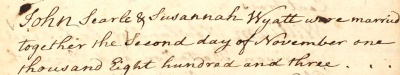 John Searle & Susannah Wyatt were married
together the Second day of November one
thousand Eight hundred and three . . .